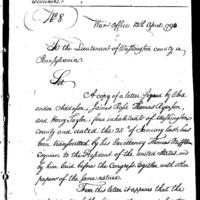 No 8
War Office 13th April 1790
To the Lieutenant of Washington county in
Pennsylvania
Sir
A copy of a letter signed by Alex
ander Addison, James Ross, Thomas Ryerson,
and Henry Taylor, four inhabitants of Washington
County and dated the 25th of January last, has
been transmitted by his Excellency Thomas Mifflin
Esquire to the President of the United States and
by him laid before the Congress together with other
papers of the same nature.
From this letter it appears that the